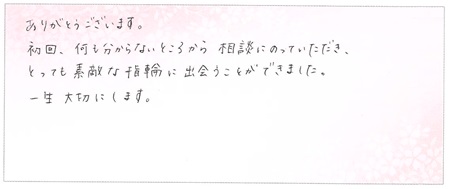 ありがとうございます。
初回、何も分からないところから 相談にのっていただき、
とっても 素敵な 指輪に 出会うことができました。
一生 大切にします。